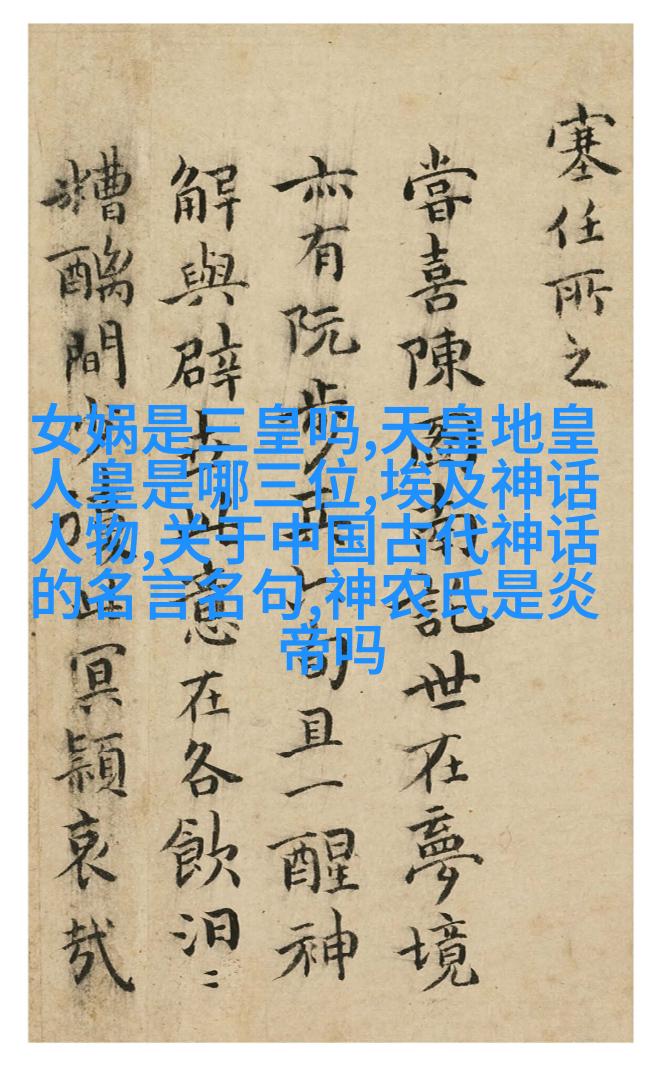 塞任所之
嘗喜陳圖南記世在夢境
亦有阮步兵前且一醒神
解與辟世意在各飲汩〻
糟醨間此冥穎哀哉
女娲是三皇吗,天皇地皇
人皇是哪三位,埃及神话
人物,关于中国古代神话
的名言名句,神农氏是炎
帝吗